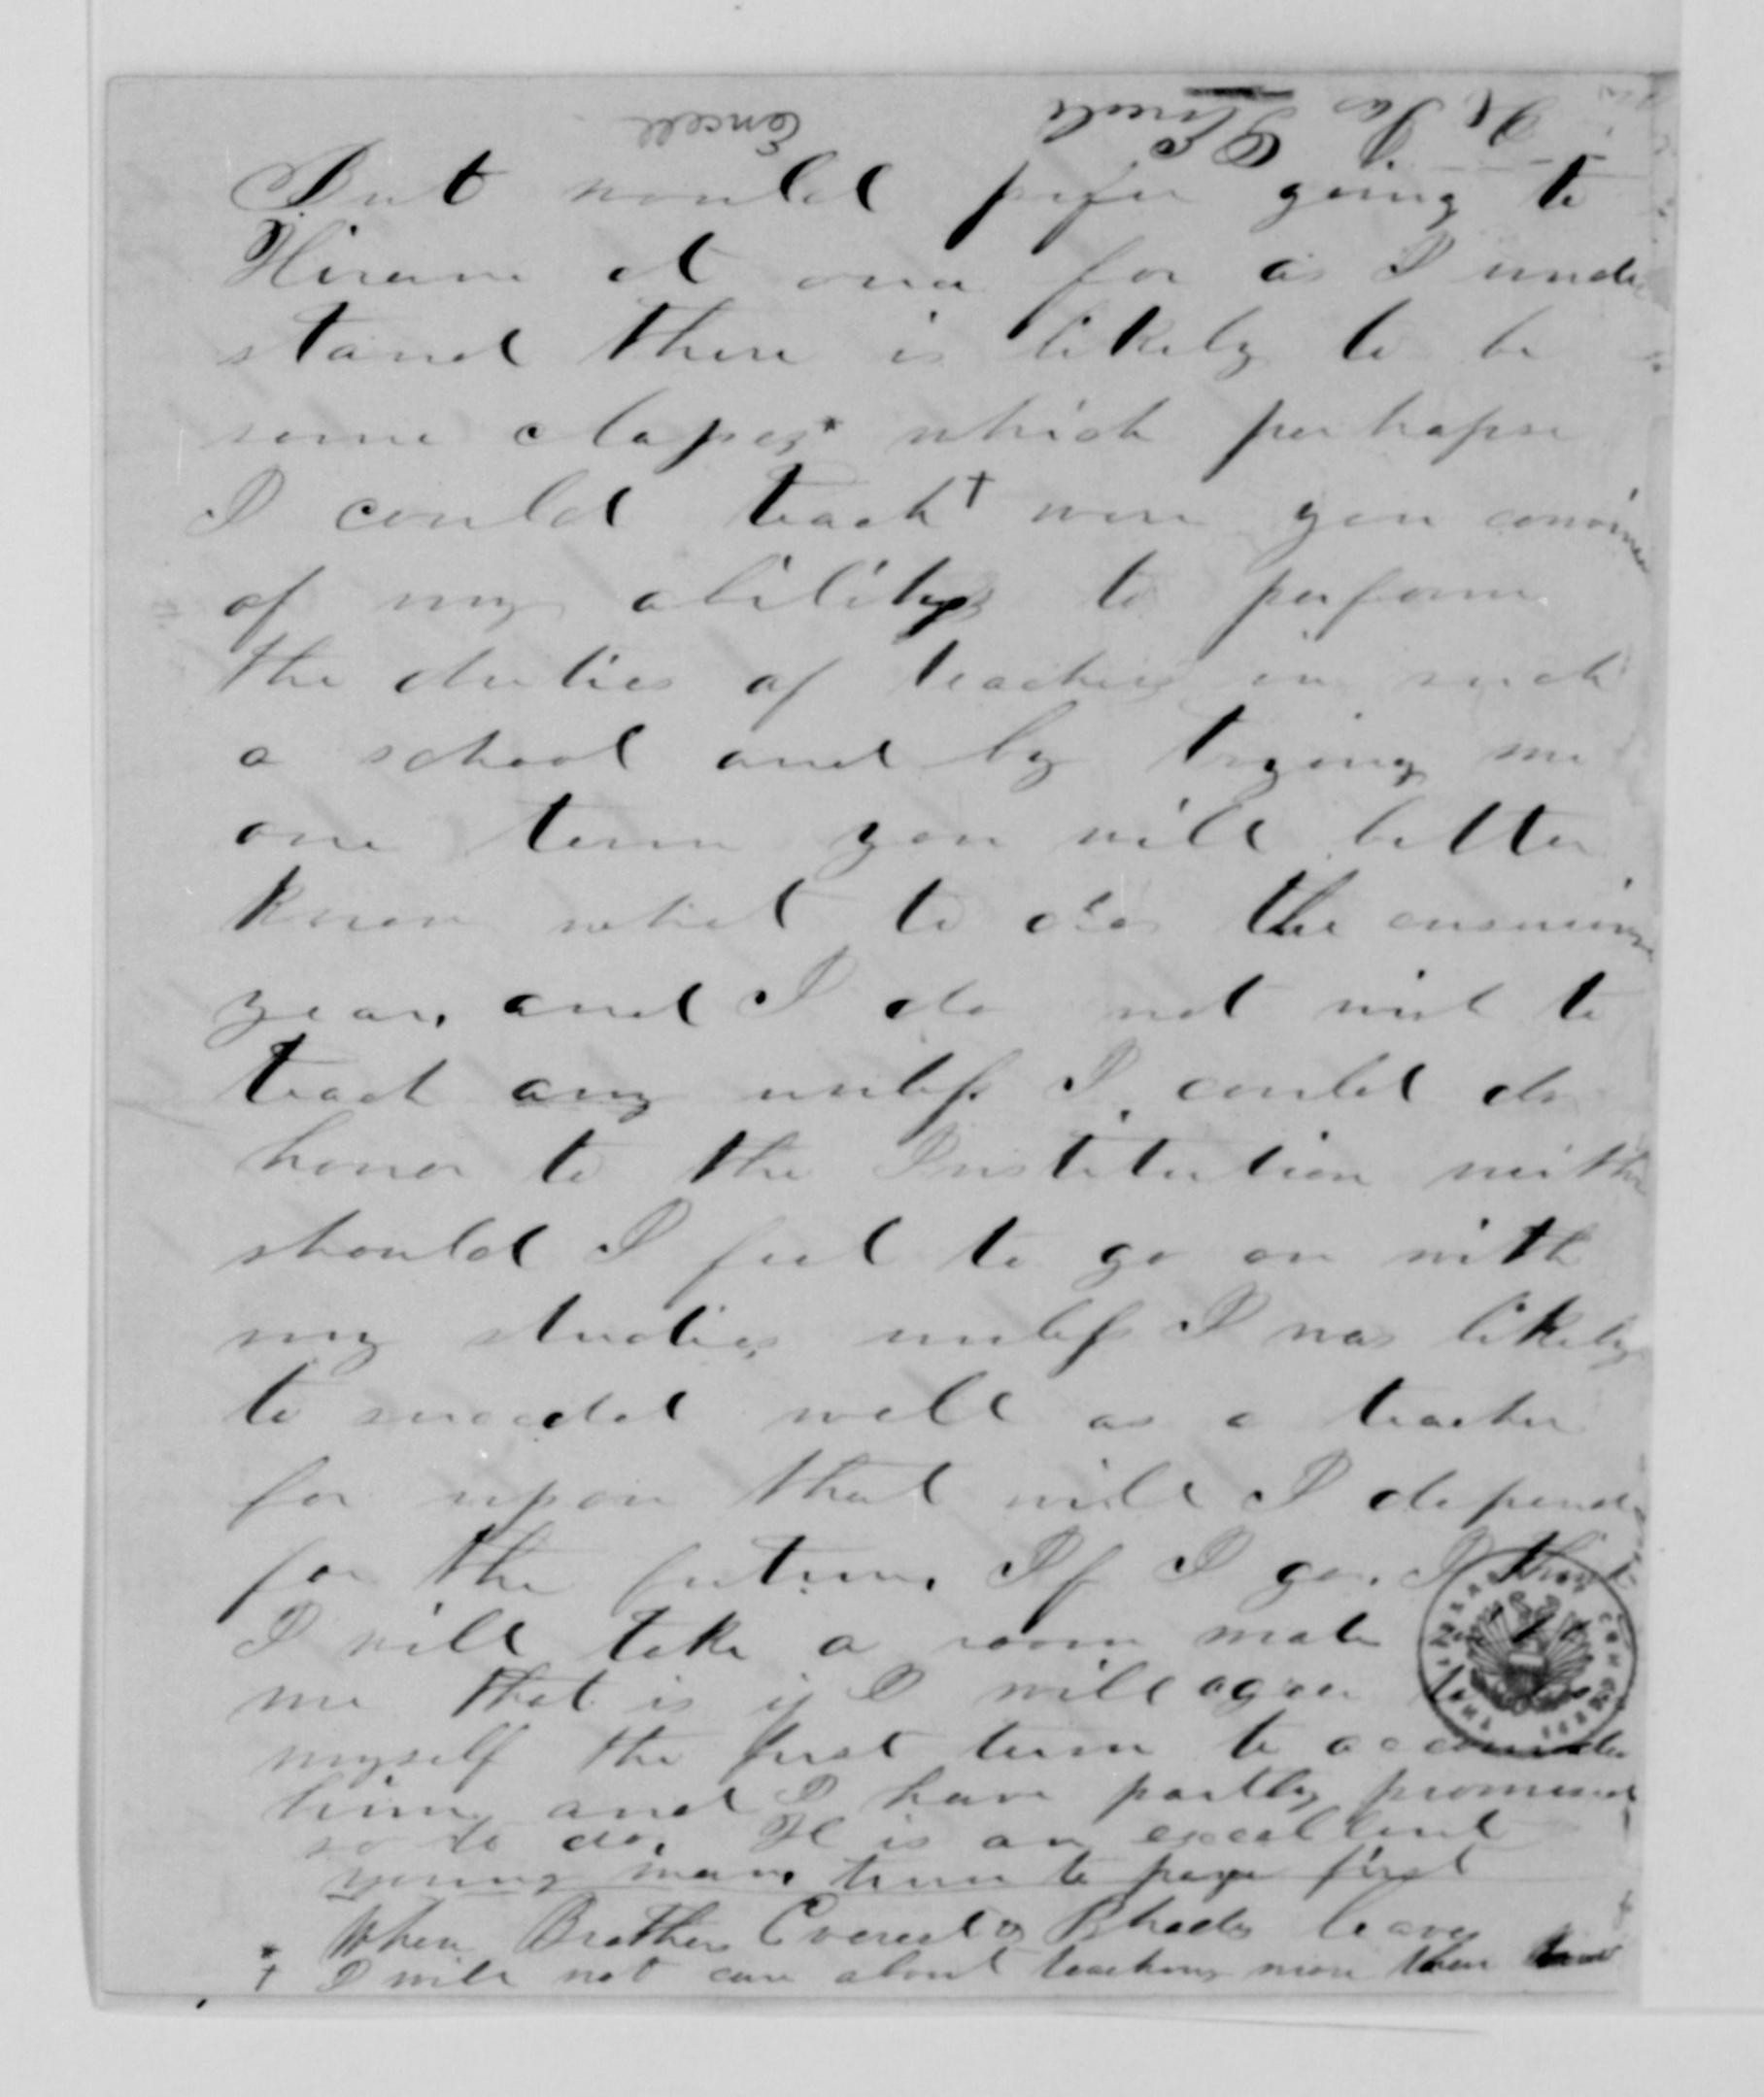 Encell
But would prefer going to
Hiram at once for as I under
stand there is likely to be
some classes* which perhapse
I could teach† were you convince
of my ability to perform
the duties of teaching in such
a school and by trying me
one term you will better
know what to do the ensuing
year, and I do not wish to
teach any unless I could do
honor to the Institution neither
should I feel to go on with
my studies unless I was likely
to succeded well as a teacher
for upon that will I depend
for the future. If I go. I think
I will take a room mate
me that is if I will agree
myself the first term to accomodate
him and I have partly promised
so to do. He is an excellent
young man. turn to page first
* When Brothers Everest & Rhodes leave
† I will not care about teaching more than